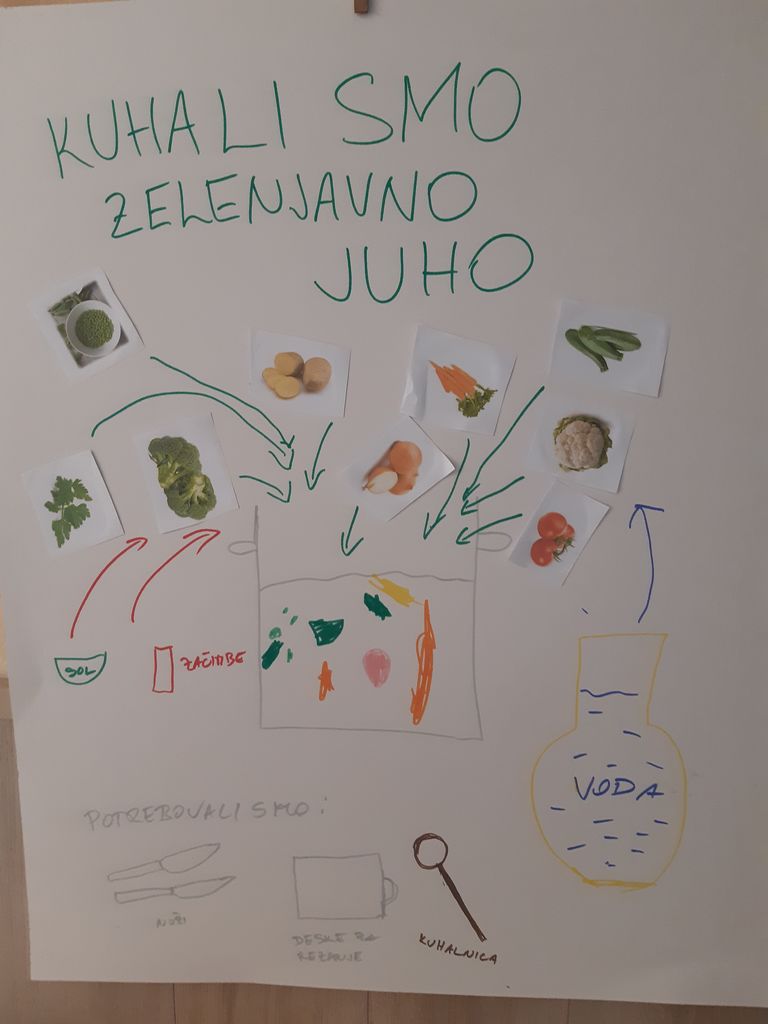 KUHALI SMO
ZELENJAVNO
JUHO
SOL
ZAČIMBE
VODA
POTREBOVALI SMO:
NOŽI
DESKE ZA
REZANJE
KUHALNICA